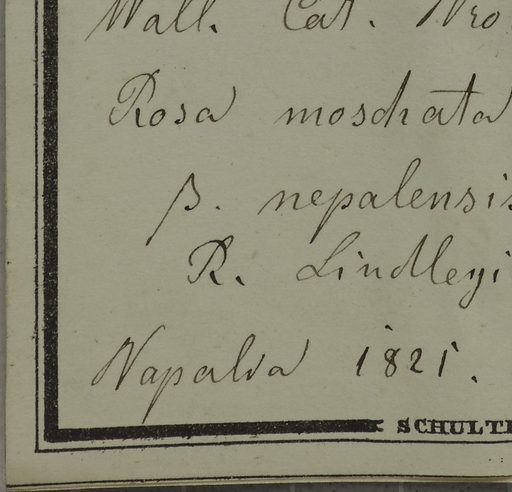 Wall. Cat. Nro
Rosa moschata
β. nepalensis
R. Lindleyi
Napalia 1821.
SCHULT